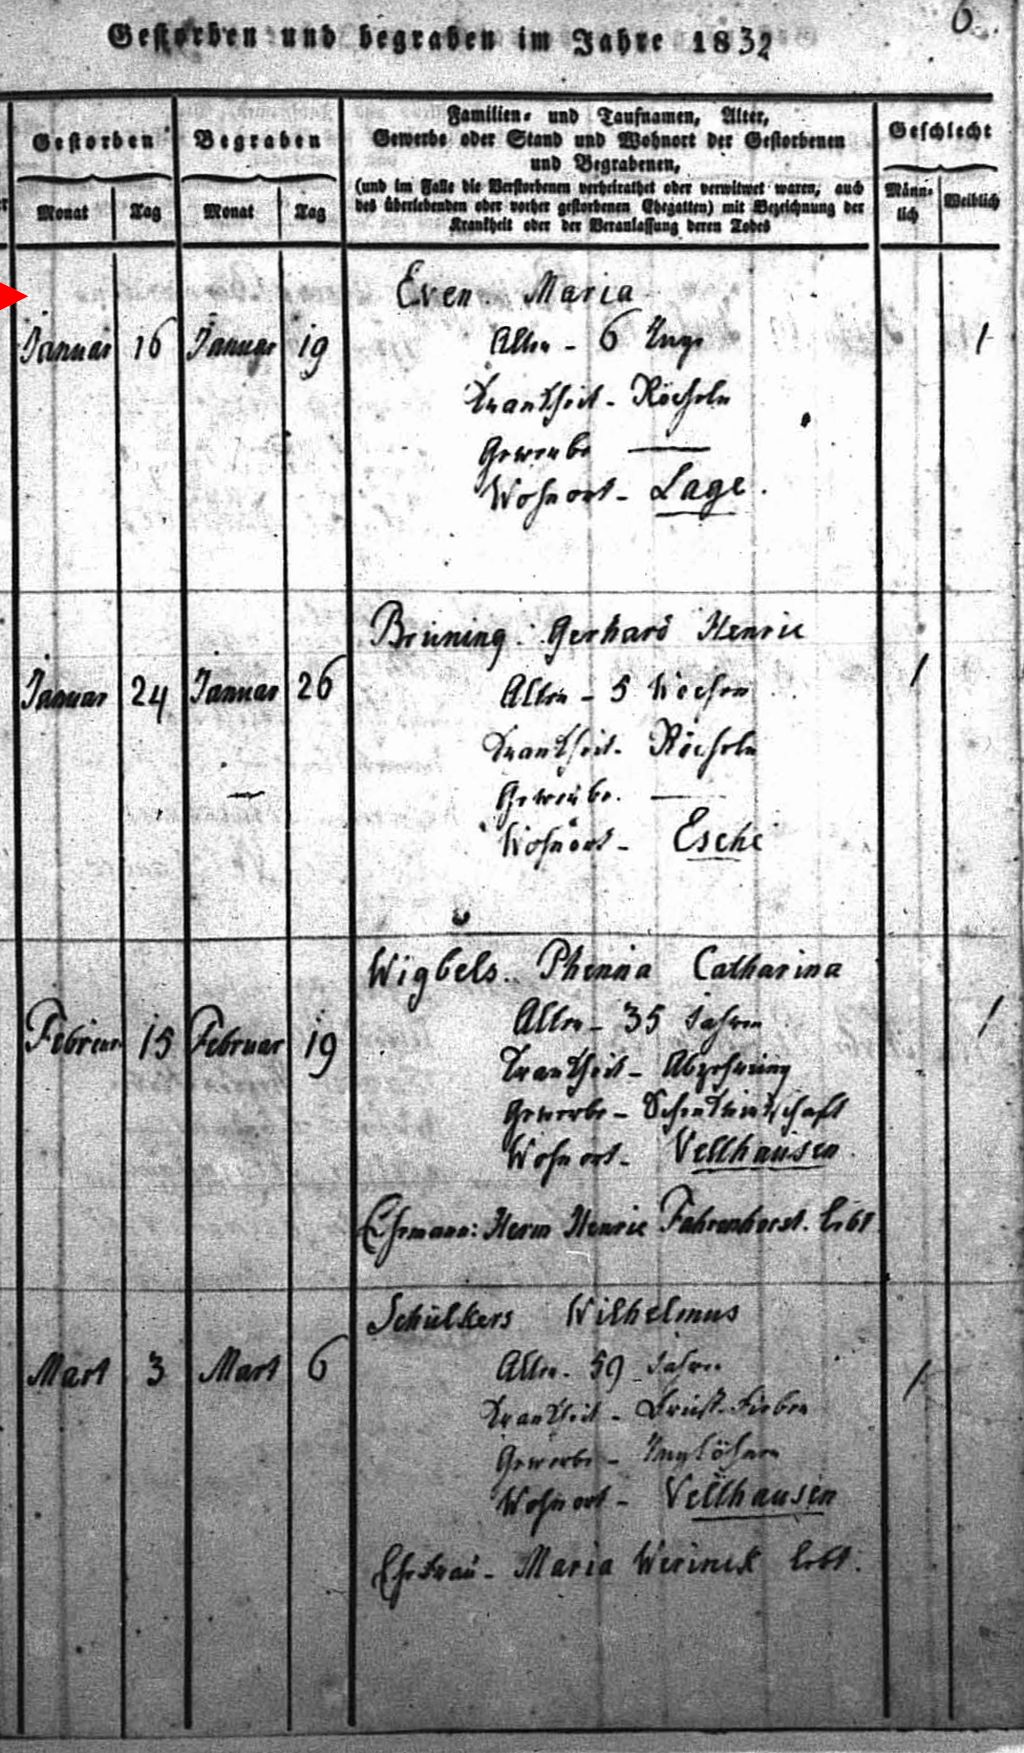 6.
Gestorben und begraben im Jahre 1832
Gestorben
Begraben
Familien- und Taufnamen, Alter,
Gewerbe oder Stand und Wohnort der Gestorbenen
und Begrabenen,
(und im Falle die Verstorbenen verheirathet oder verwitwet waren, auch
des überlebenden oder vorher gestorbenen Ehegatten) mit Bezeichnung der
Krankheit oder der Veranlassung deren Todes
Geschlecht
Monat Tag Monat Tag
Männ-
lich
Weiblich
Even Maria
Januar 16 Januar 19 Alter - 6 Tage 1
Krankheit - Röcheln
Gewerbe —
Wohnort - Lage.
Brüning Gerhard Henric
Januar 24 Januar 26 Alter - 5 Wochen 1
Krankheit - Röcheln
Gewerbe. —
Wohnort - Esche
Wigbels. Phenna Catharina
Februar 15 Februar 19 Alter - 35 Jahren 1
Krankheit - Abzehrung
Gewerbe - Schenkwirthschaft
Wohnort - Vellhausen
Ehemann: Herm Henric Fahrenhorst. lebt
Schülkers Wilhelmus
Mart 3 Mart 6 Alter - 59 Jahren 1
Krankheit - Brust-Fieber
Gewerbe - Taglöhner
Wohnort - Vellhausen
Ehefrau - Maria lebt.